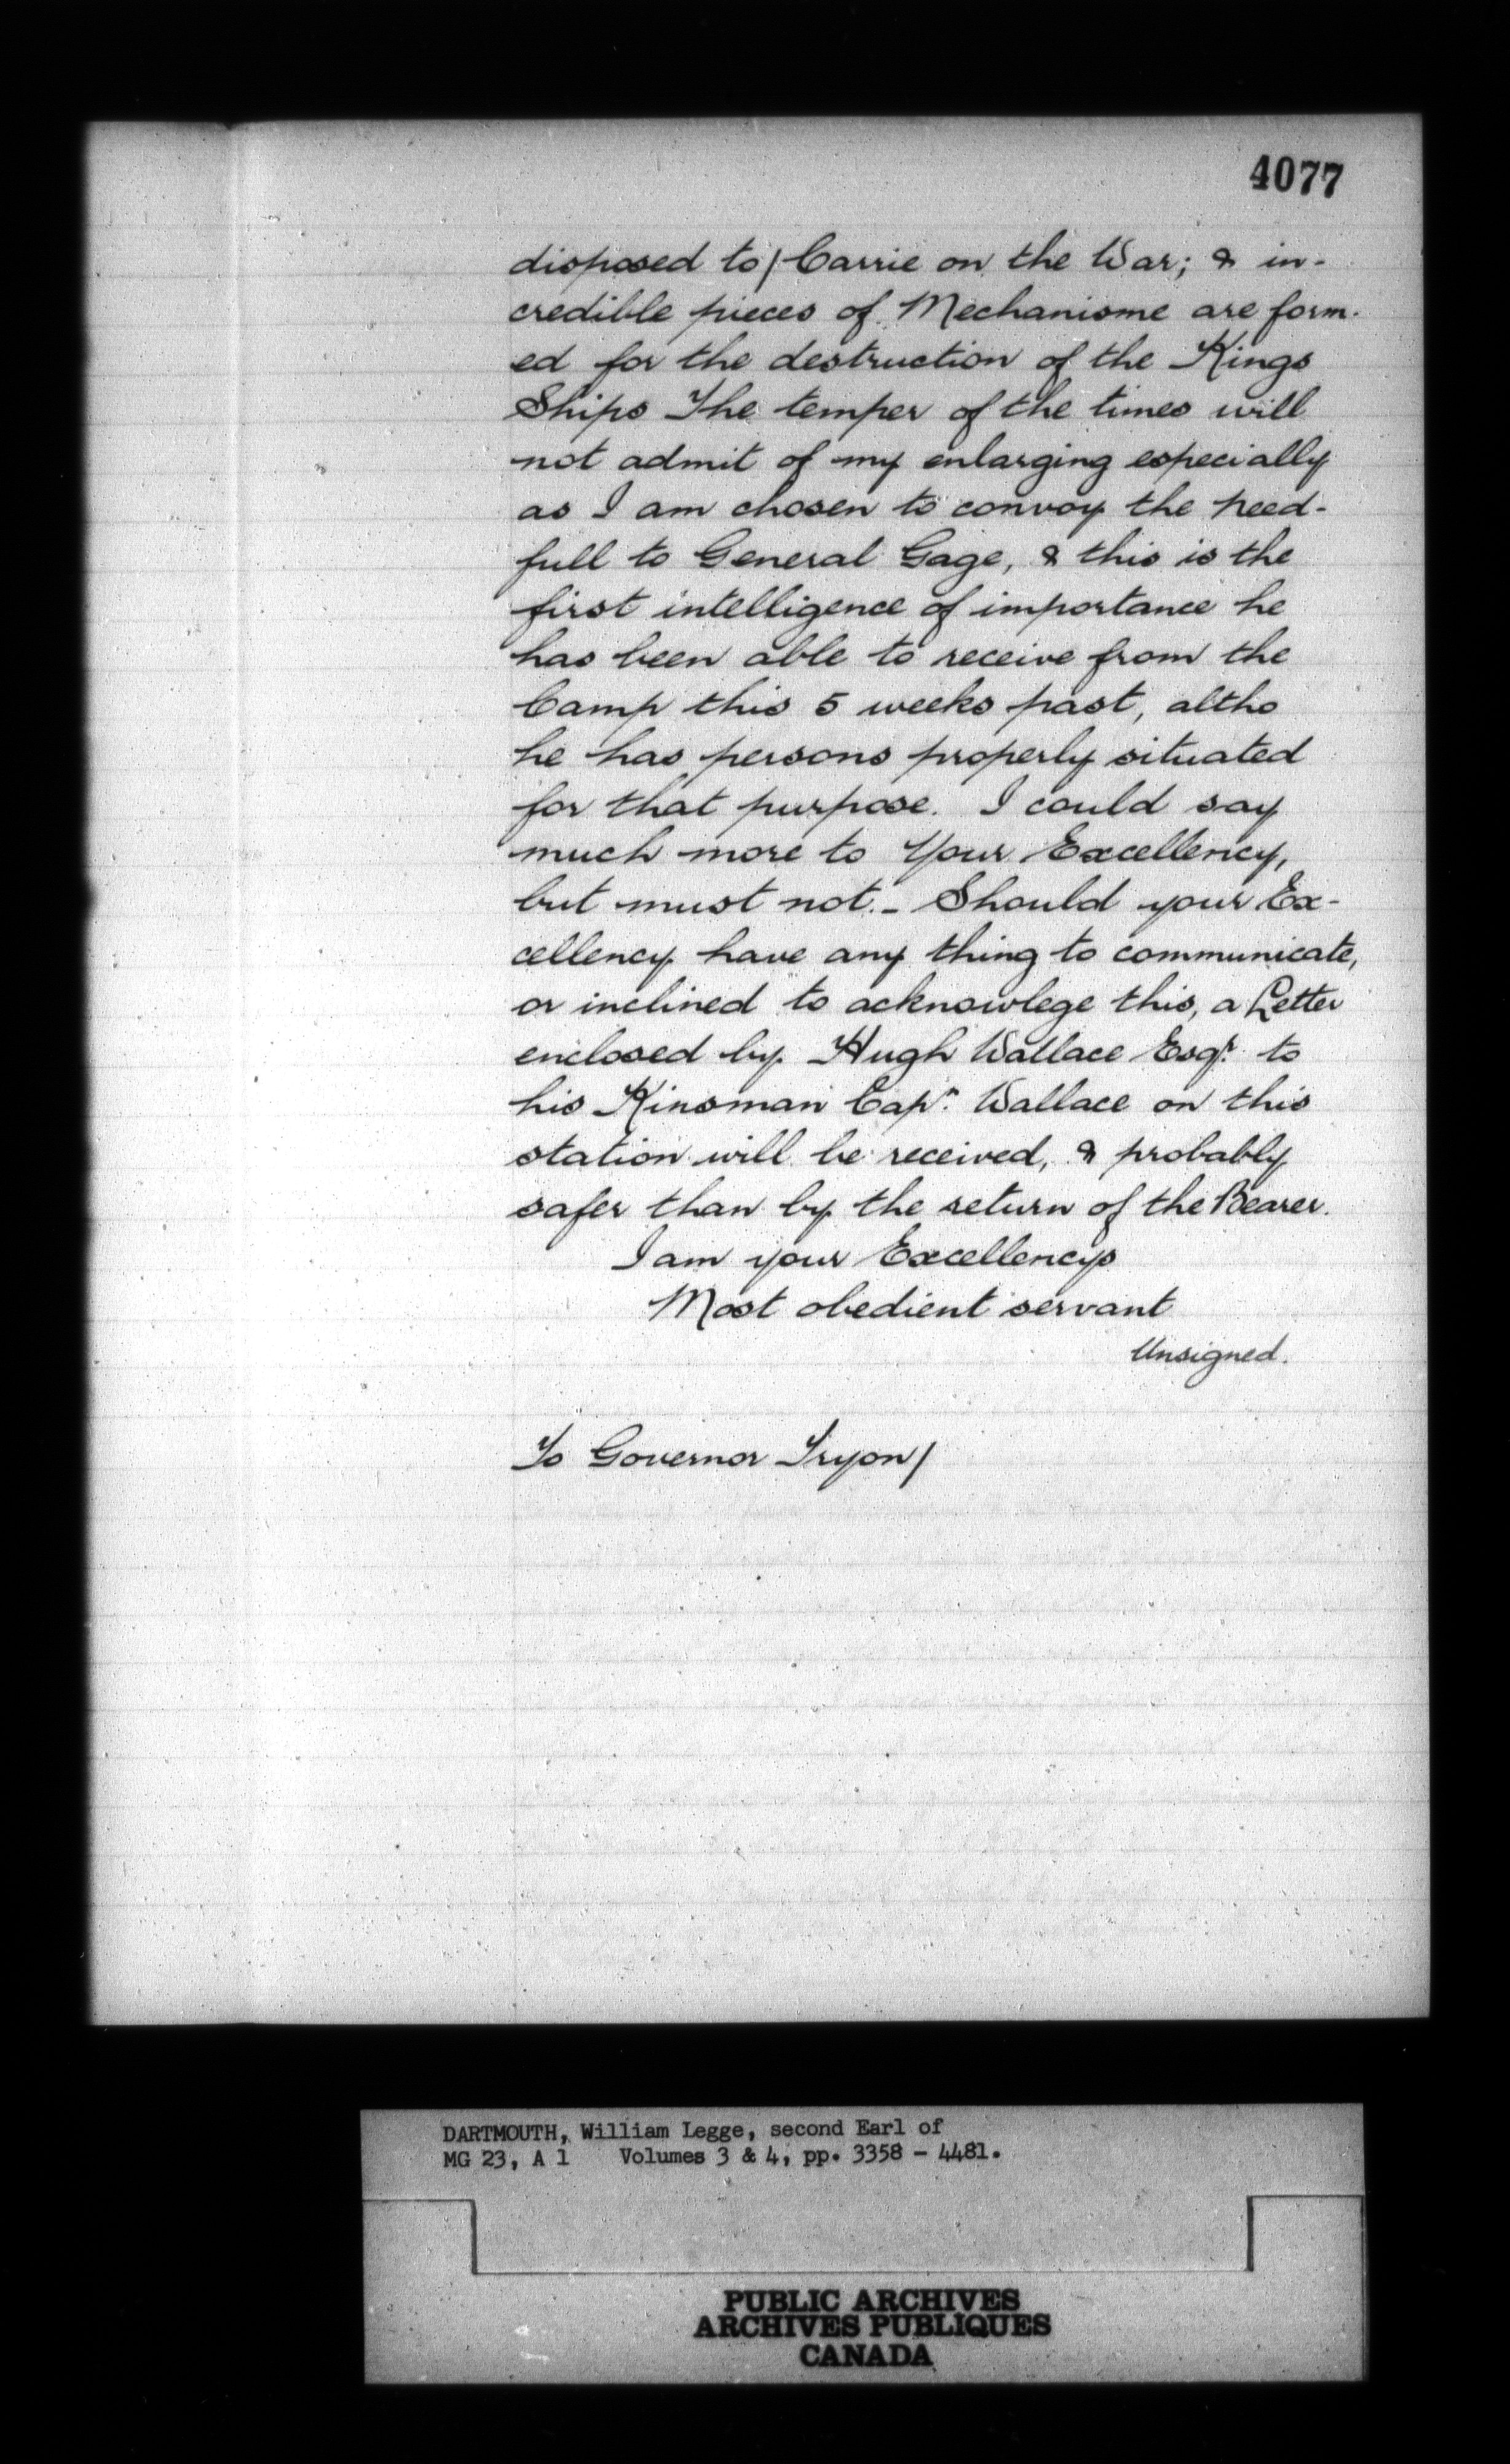 4077
disposed to/Carrie on the War; & in-
credible pieces of Mechanisme are form-
ed for the destruction of the Kings
Ships The temper of the times will
not admit of my enlarging especially
as I am chosen to convoy the need-
full to General Gage, & this is the
first intelligence of importance he
has been able to receive from the
Camp this 5 weeks past, altho
he has persons properly situated
for that purpose. I could say
much more to Your Excellency,
but must not.- Should your Ex-
cellency have any thing to communicate,
or inclined to acknowlege this, a Letter
enclosed by Hugh Wallace Esqr. to
his Kinsman Capn. Wallace on this
station will be received, & probably
safer than by the return of the Bearer.
I am your Excellencys
Most obedient servant
Unsigned.
To Governor Tryon/
DARTMOUTH, William Legge, second Earl of
MG 23, A 1 Volumes 3 & 4, pp. 3358 - 4481.
PUBLIC ARCHIVES
ARCHIVES PUBLIQUES
CANADA